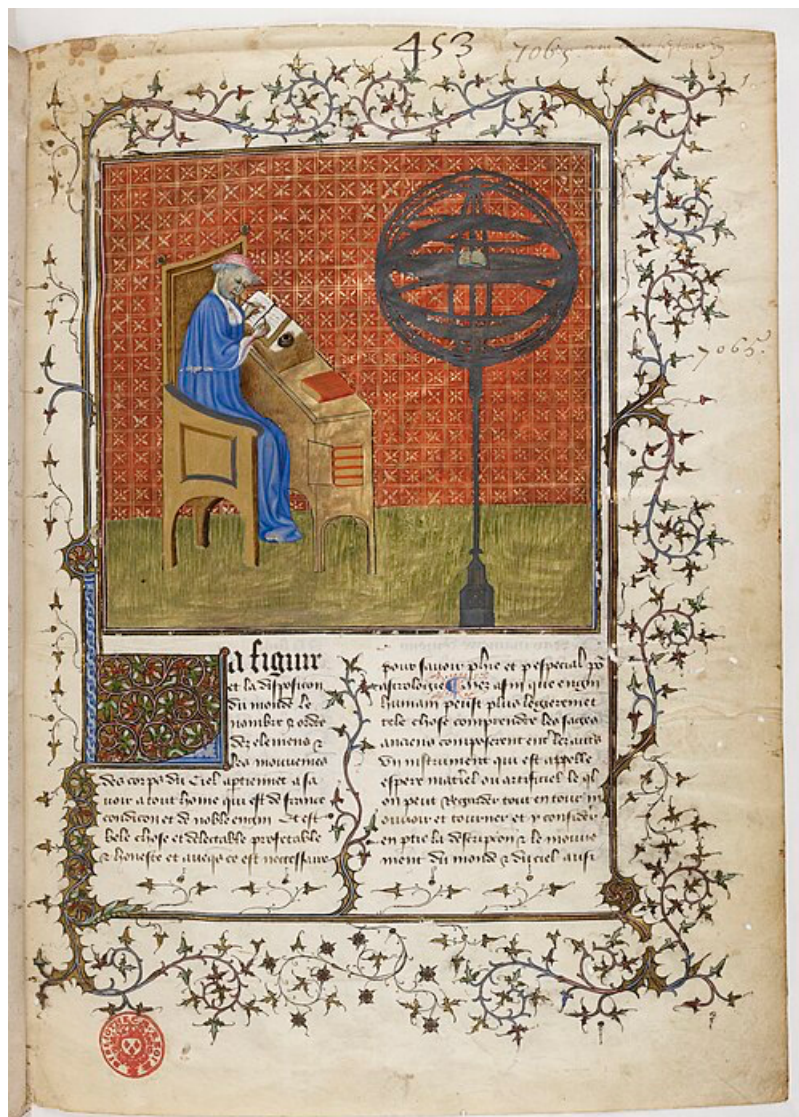 453
7065
7065.
La figure
et la disposicion
du monde le
nombre et ordre
des elemens et
les mouvemens
des corps du ciel aptiennet a sa
voir a tout home qui est de france
condicion et de noble engin Et est
bele chose et delectable profetable
et honeste et aueqs ce est necessaire
pour sauoir phie et p especial po
astrologie Mes afin que engin
humain peust plus legierement
tele chose comprendre les sages
anciens composerent entre les autres
un instrument qui est appelle
espere materiel ou artificiel le ql
on peut regarder tout entour
et tourner et y considerer
en ptie la descripcion et le mouue
ment du monde et du ciel aussi